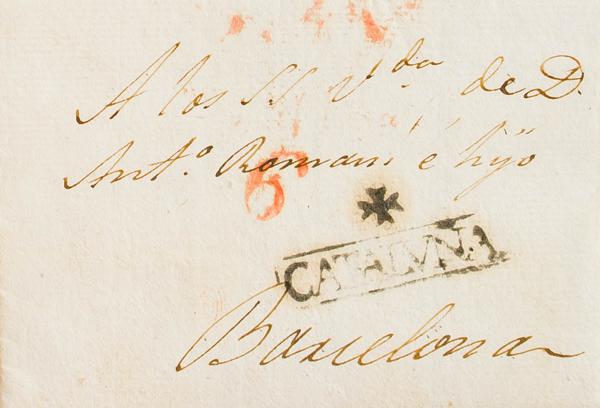 A los SS V.da de D.
Ant.o Romani é hijo
6
CATALVÑA
Barcelona